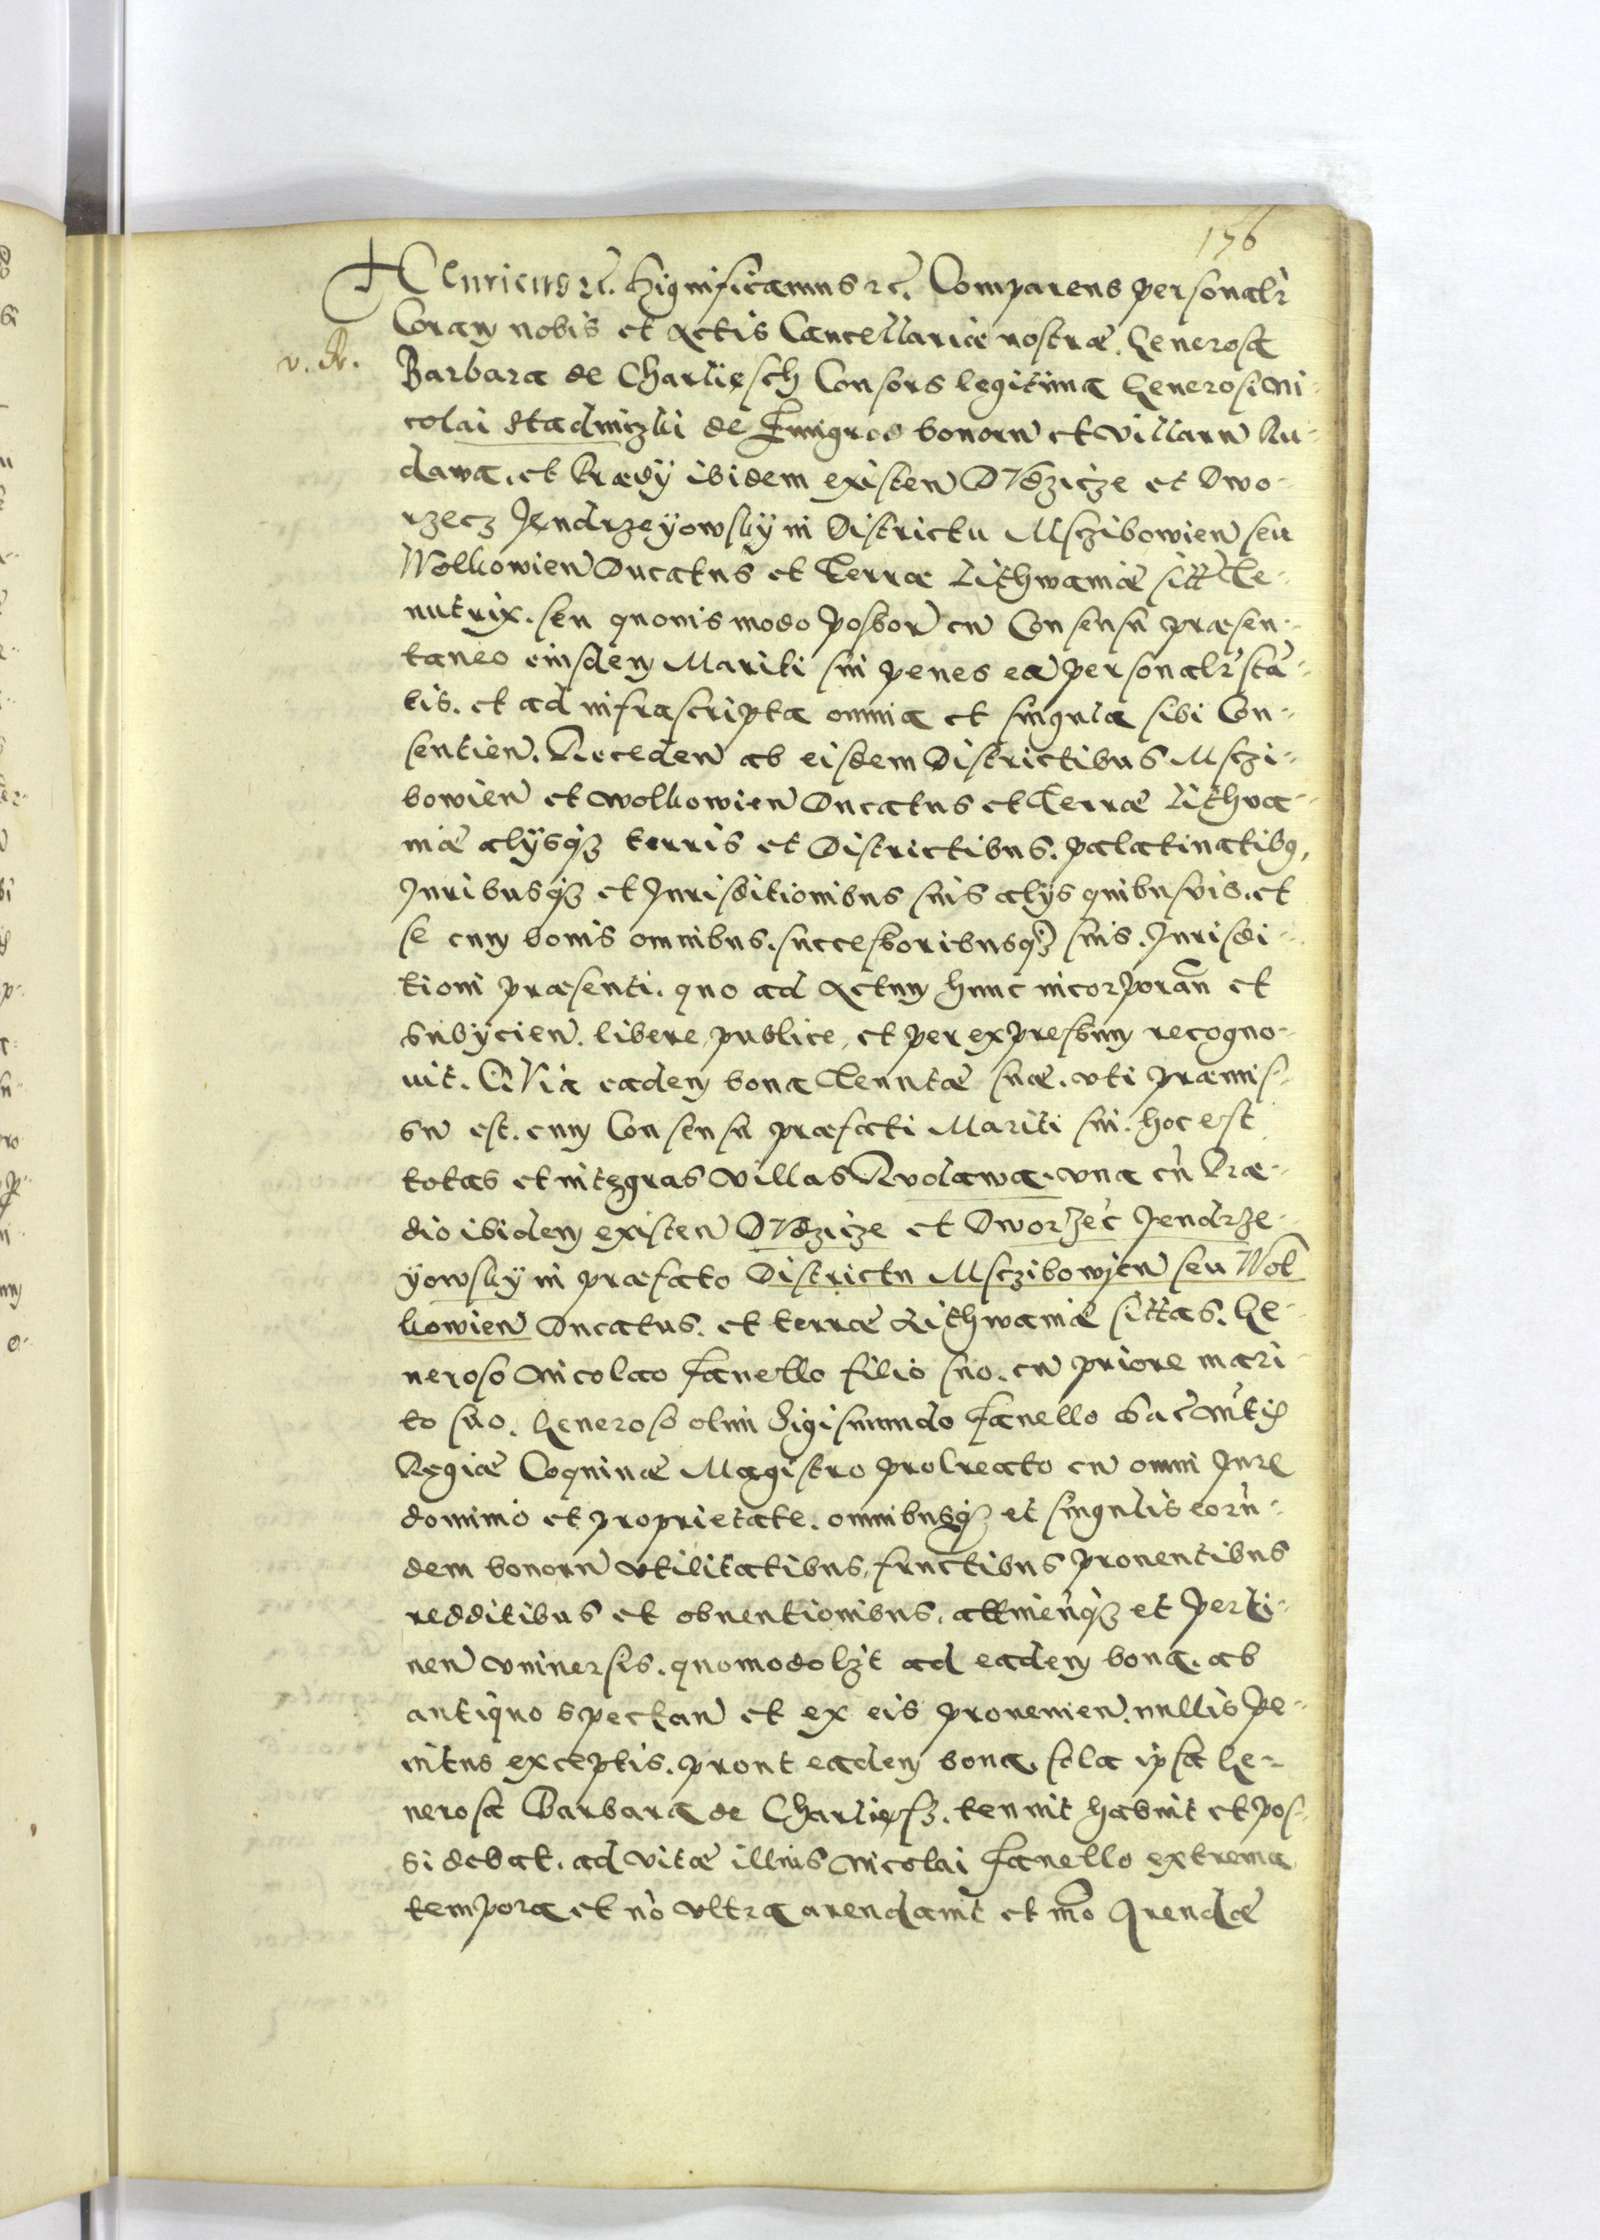 176
Henricus etc. Significamus etc. Comparens personalr
Coram nobis et Actis Cancellariæ nostræ. Generosa
v. R.
Barbara de Charliesch Consors legitima Generosi Ni-
colai Stadniczki de Zmigrod bonorū et villarū Ru-
dawa. et Prædÿ ibidem existen̄ OVsziczе et Dwo-
rzecz Jendrzeÿowskÿ in Districtu Msczibowien̄ seu
Wolkowien̄ Ducatus et Terræ Lithwaniæ sitt̄ Te-
nutrix. seu quovismodo possor̄ cū Consensu præsen-
taneo eiusdem Mariti sui penes eā personalr̄ stā-
tis. et ad infrascripta omnia et singula sibi Con-
sentien̄. Receden̄ ab eisdem Districtibus Msczi-
bowien̄ et Wolkowien̄ Ducatus et Terræ Lithva-
niæ alÿsq3 terris et Districtibus. palatinatibꝯ,
Juribusq3 et Jurisditionibus suis alÿs quibusvis. et
se cum bonis omnibus. successoribusq3 suis. Jurisdi-
tioni præsenti. quo ad Actum hunc incorporan̄ et
subÿcien̄. libere, publice, et per expressum recogno-
uit. QVia eadem bona Tenutæ suæ. vti præmis-
sū est. cum Consensu præfati Mariti sui. hoc est
totas et integras villas Rvdawa. vna cū Præ-
dio ibidem existen̄ OVsziczе et Dworzec Jendrze-
ÿowskÿ in præfato Districtu Msczibowien̄ seu Wol
kowien̄ Ducatus. et terræ Lithwaniæ sittas. Ge-
neroso Nicolao Fanello filio suo. cū priore mari-
to suo. Generoso olim Sigismundo Fanello Sac Mtis
Regiæ Coquinæ Magistro procreato cū omni Jure
dominio et proprietate. omnibusq3 et singulis eorū-
dem bonorū vtilitatibus, fructibus prouentibus
redditibus et obuentionibus. attinen̄q3 et perti-
nen̄ vniuersis. quomodolzt ad eadem bona. ab
antiquo spectan̄ et ex eis prouenien̄. nullis pe-
nitus exceptis. prout eadem bona, sola ipsa Ge-
nerosa Barbara de Charliesz. tenuit habuit et pos-
sidebat. ad vitæ illius Nicolai Fanello extrema
tempora et nō vltra arendauit et mō Arendæ